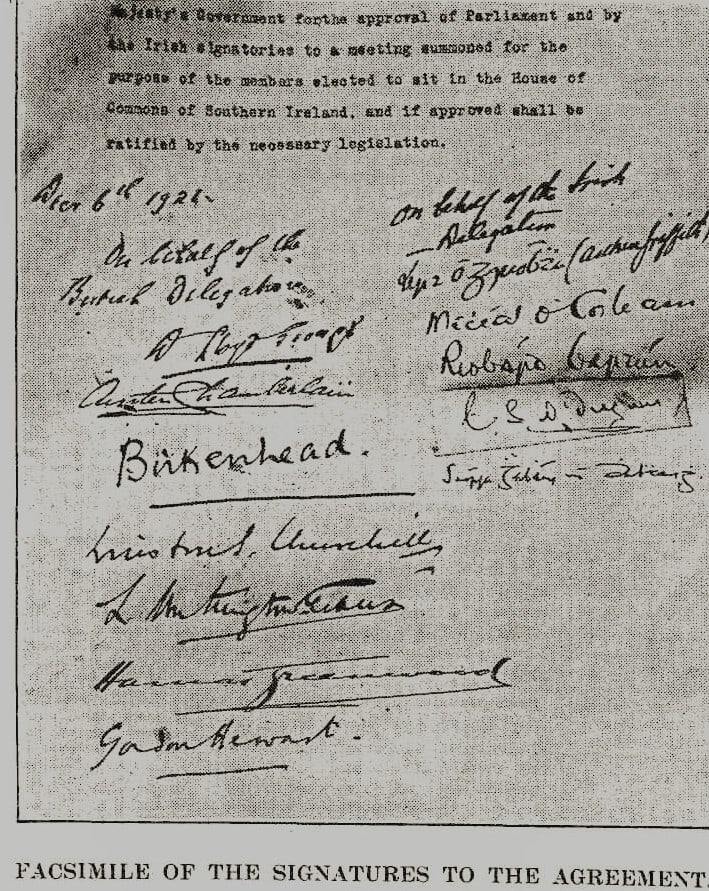 Majesty's Government forthe approval of Parliament and by
the Irish signatories to a meeting summoned for the
purpose of the members elected to sit in the House of
Commons of Southern Ireland, and if approved shall be
ratified by the necessary legislation.
Decr 6th 1921.
On behalf of the
British Delegation
D Lloyd George
Austen Chamberlain
Birkenhead.
Winston S. Churchill
L Worthington Evans
Hamar Greenwood
Gordon Hewart.
On behalf of the Irish
Delegation
(Arthur Griffith)
Micéal
Riobárd
FACSIMILE OF THE SIGNATURES TO THE AGREEMENT.